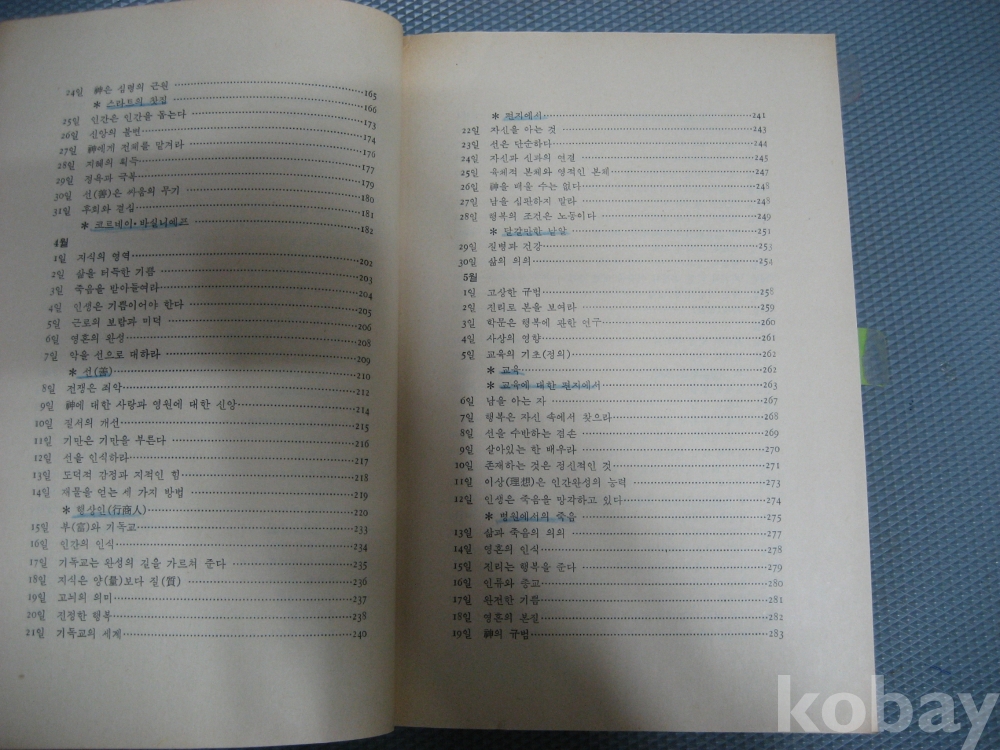 24일 神은 섭령의 근원 165
* 스라트의 찻집 166
25일 인간은 인간을 돕는다 173
26일 신앙의 불변 174
27일 神에게 전체를 맡겨라 176
28일 지혜의 획득 177
29일 정욕과 극복 179
30일 선(善)은 싸움의 무기 180
31일 후회와 결심 181
* 코르네이·바실니에프 182
4월
1일 지식의 영역 202
2일 삶을 터득한 기쁨 203
3일 죽음을 받아들여라 204
4일 인생은 기쁨이어야 한다 205
5일 근로의 보람과 미덕 206
6일 영혼의 완성 208
7일 악을 선으로 대하라 209
* 선(善) 210
8일 전쟁은 죄악 212
9일 神에 대한 사랑과 영원에 대한 신앙 214
10일 질서의 개선 215
11일 기만은 기만을 부른다 216
12일 선을 인식하라 217
13일 도덕적 감정과 지적인 힘 218
14일 재물을 얻는 세 가지 방법 219
* 행상인(行商人) 220
15일 부(富)와 기독교 233
16일 인간의 인식 234
17일 기독교는 완성의 길을 가르쳐 준다 235
18일 지식은 양(量)보다 질(質) 236
19일 고뇌의 의미 237
20일 진정한 행복 238
21일 기독교의 세계 240
* 편지에서 241
22일 자신을 아는 것 243
23일 선은 단순하다 244
24일 자신과 신과의 연결 245
25일 육체적 본체와 영적인 본체 247
26일 神을 배울 수는 없다 248
27일 남을 심판하지 말라 248
28일 행복의 조건은 노동이다 249
* 달걀만한 낱알 251
29일 질병과 건강 253
30일 삶의 의의 254
5월
1일 고상한 규범 258
2일 진리로 본을 보여라 259
3일 학문은 행복에 관한 연구 260
4일 사상의 영향 261
5일 교육의 기초(정의) 262
* 교육 262
* 교육에 대한 편지에서 263
6일 남을 아는 자 267
7일 행복은 자신 속에서 찾으라 268
8일 선을 수반하는 겸손 269
9일 살아있는 한 배우라 270
10일 존재하는 것은 정신적인 것 271
11일 이상(理想)은 인간완성의 능력 273
12일 인생은 죽음을 망각하고 있다 274
* 병원에서의 죽음 275
13일 삶과 죽음의 의의 277
14일 영혼의 인식 278
15일 진리는 행복을 준다 279
16일 인류와 종교 280
17일 완전한 기쁨 281
18일 영혼의 본질 282
19일 神의 규범 283
kobay